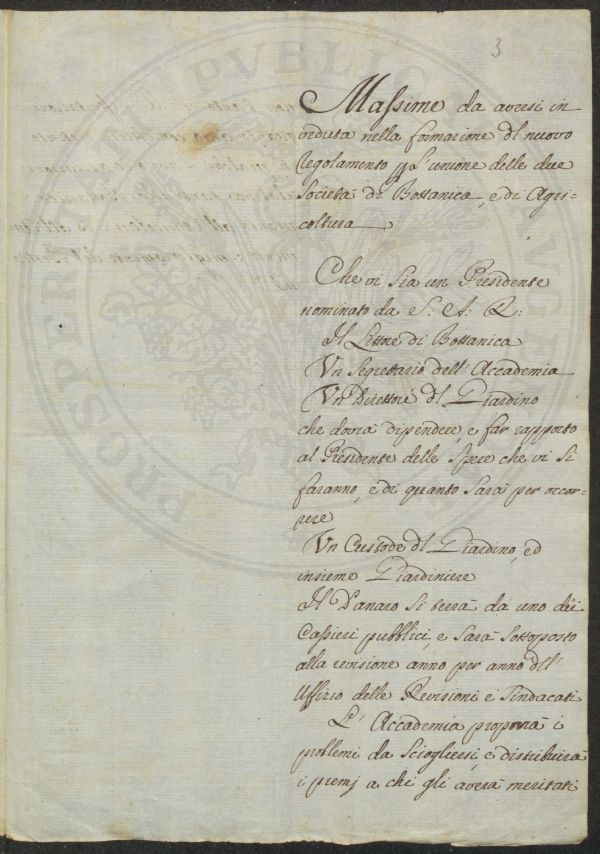 3
Massime da aversi in
veduta nella formazione dl nuovo
Regolamento ppl'unione delle due
Società di Bottanica, e di Agri=
coltura
Che vi sia un Presidente
nominato da S: A: R:
Il Lettore di Bottanica
Un Segretario dell'Accademia
Un Direttore dl Giardino
che dovrà dipendere, e far rapporto
al Presidente delle spese che vi si
faranno, e di quanto sarà per occor=
rere
Un Custode dl Giardino, ed
insieme Giardiniere
Il Danaro si terrà da uno dei
Cassieri pubblici, e sarà sottoposto
alla revisione anno per anno dll'
Uffizio delle Revisioni e Sindacati
L'Accademia proporrà i
problemi da sciogliersi, e distribuirà
i premj a chi gli averà meritati